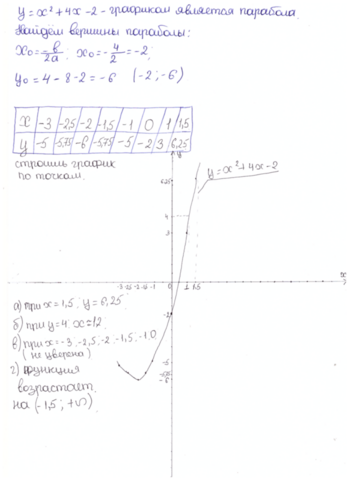 y = x² + 4x - 2 - графиком является парабола.
Найдём вершины параболы:
x₀ = -в/2a ; x₀ = -4/2 = -2;
y₀ = 4 - 8 - 2 = -6 (-2; -6)
x -3 -2,5 -2 -1,5 -1 0 1 1,5
y -5 -5,75 -6 -5,75 -5 -2 3 6,25
строим график
по точкам.
y
y = x² + 4x - 2
6,25
4
3
x
-3 -2,5 -2 -1,5 -1 0 1 1,5
-2
-5
-5,75
-6
а) при x = 1,5; y = 6,25
б) при y = 4 x = 1,2
в) при x = -3; -2,5; -2; -1,5; -1; 0
(не уверена)
г) функция
возрастает
на (-1,5; +∞)